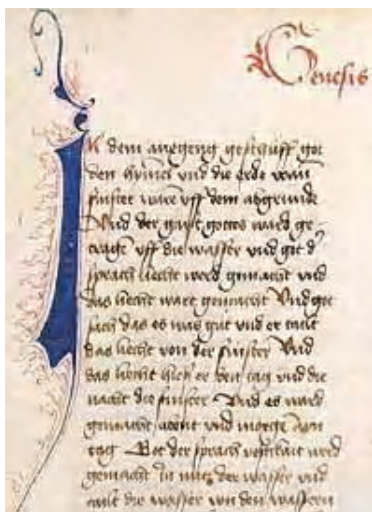 Genesis
In dem anegeng geschüff got
den hymel vnd die erde wan
finster waren vff dem abgrunde
Vnd der gaist gottes ward ge
tragē vff die wasser vnd got d'
sprach liecht werd gemacht vnd
das liecht wart gemacht Vnd got
sach das es was gut vnd er tailt
das liecht von der finster Vnd
das liecht hieß er den tag vnd die
nacht die finster Vnd es ward
gemacht abent vnd morge ain
tag Got der sprach werd
gemacht in mitz der wasser vnd
tailt die wasser von den wassern